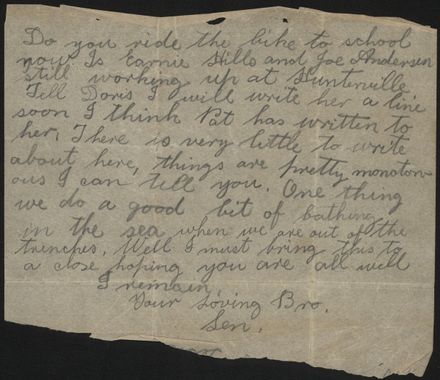 Do you ride the bike to school
now. Is Earnie Hills and Joe Andersen
still working up at Hunterville.
Tell Doris I will write her a line
soon I think Pat has written to
her. There is very little to write
about here, things are pretty monoton-
ous I can tell you. One thing
we do a good bit of bathing
in the sea when we are out of the
trenches. Well I must bring this to
a close hoping you are all well
I remain,
Your Loving Bro.
Len.